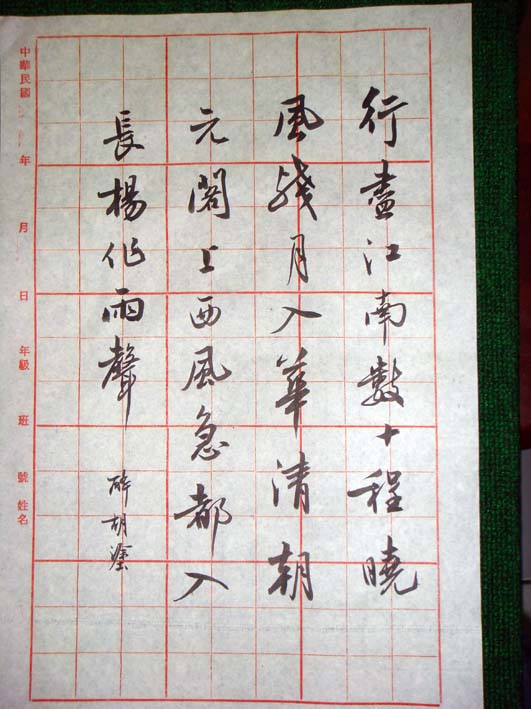 行盡江南數十程曉
風殘月入華清朝
元閣上西風急都入
長楊作雨聲 醉胡塗
中華民國 年 月 日 年級 班 號 姓名